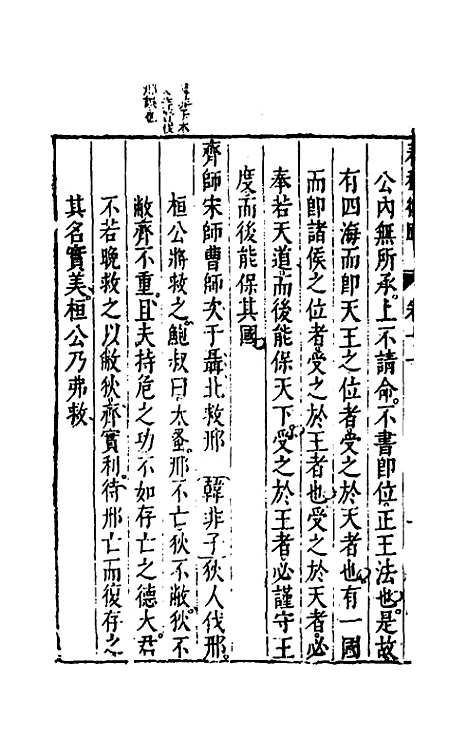 卷十一
公內無所承上不請命不書卽位正王法也是故
有四海而卽天王之位者受之於天者也有一國
而卽諸侯之位者受之於王者也受之於天者必
奉若天道而後能保天下受之於王者必謹守王
度而後能保其國
齊師宋師曹師次于聶北救邢 韓非子狄人伐邢
桓公將救之鮑叔曰太蚤邢不亡狄不敝狄不
敝齊不重且夫持危之功不如存亡之德大君
不若晚救之以敝狄齊實利待邢亡而復存之
其名實美桓公乃弗救